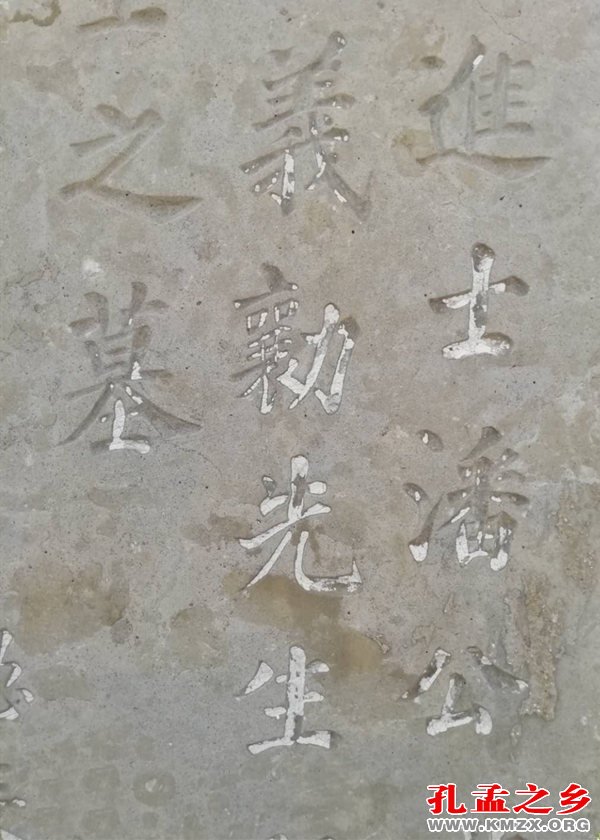 進士潘公
義勷光生
之墓
孔孟之乡
WWW.KMZX.ORG